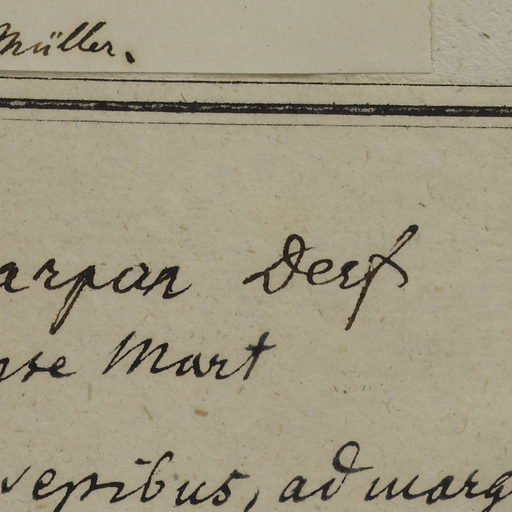 Müller.
arpan Desf
nse Mart
vepribus, ad marg